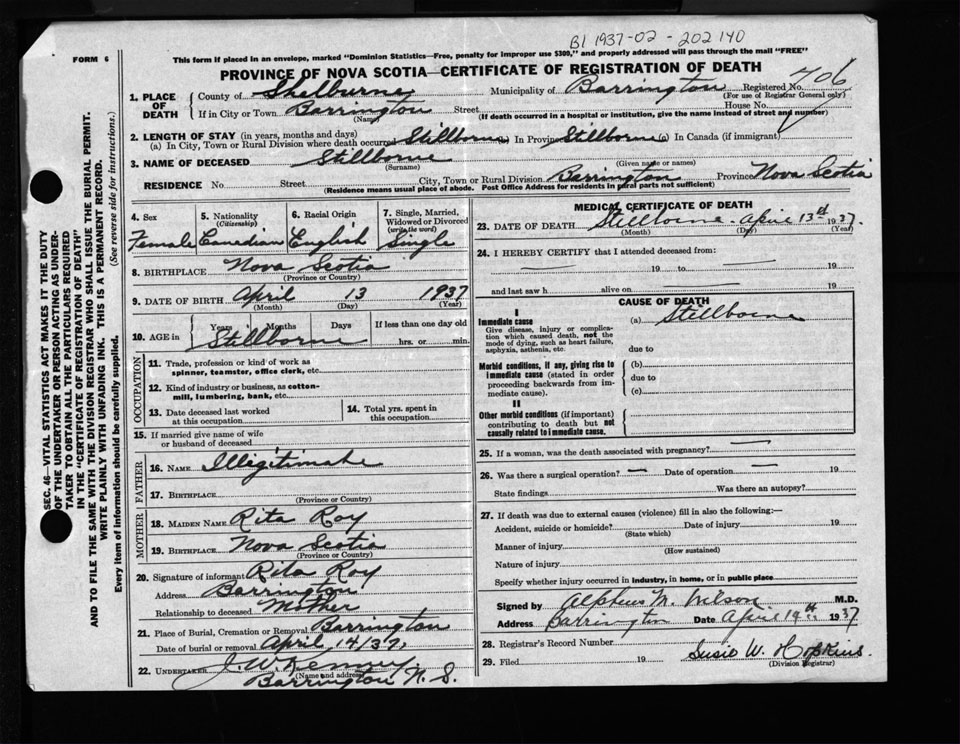 B1 1937-02-202140
FORM 6
This form if placed in an envelope, marked "Dominion Statistics—Free, penalty for improper use $300," and properly addressed will pass through the mail "FREE"
PROVINCE OF NOVA SCOTIA—CERTIFICATE OF REGISTRATION OF DEATH
SEC. 46—VITAL STATISTICS ACT MAKES IT THE DUTY
OF THE UNDERTAKER OR PERSON ACTING AS UNDER-
TAKER TO OBTAIN ALL THE PARTICULARS REQUIRED
IN THE "CERTIFICATE OF REGISTRATION OF DEATH"
AND TO FILE THE SAME WITH THE DIVISION REGISTRAR WHO SHALL ISSUE THE BURIAL PERMIT.
WRITE PLAINLY WITH UNFADING INK. THIS IS A PERMANENT RECORD.
Every item of information should be carefully supplied. (See reverse side for instructions.)
1. PLACE OF DEATH
County of Shelburne Municipality of Barrington Registered No. 706
(For use of Registrar General only)
If in City or Town Barrington Street House No.
(Name) (If death occurred in a hospital or institution, give the name instead of street and number)
2. LENGTH OF STAY (in years, months and days)
(a) In City, Town or Rural Division where death occurred Stillborne In Province Stillborne (c) In Canada (if immigrant)
3. NAME OF DECEASED Stillborne
(Surname) (Given name or names)
RESIDENCE No Street City, Town or Rural Division Barrington Province Nova Scotia
(Residence means usual place of abode. Post Office Address for residents in rural parts not sufficient)
4. Sex 5. Nationality (Citizenship) 6. Racial Origin 7. Single, Married, Widowed or Divorced (write the word)
Female Canadian English Single
8. BIRTHPLACE Nova Scotia
(Province or Country)
9. DATE OF BIRTH April 13 1937
(Month) (Day) (Year)
10. AGE in Years Months Days If less than one day old
Stillborne hrs. or min.
OCCUPATION
11. Trade, profession or kind of work as
spinner, teamster, office clerk, etc.
12. Kind of industry or business, as cotton-
mill, lumbering, bank, etc.
13. Date deceased last worked
at this occupation
14. Total yrs. spent in
this occupation
15. If married give name of wife
or husband of deceased
FATHER
16. NAME Illigitimate
17. BIRTHPLACE
(Province or Country)
MOTHER
18. MAIDEN NAME Rita Roy
19. BIRTHPLACE Nova Scotia
(Province or Country)
20. Signature of informant Rita Roy
Address Barrington
Relationship to deceased Mother
21. Place of Burial, Cremation or Removal Barrington
Date of burial or removal April 14/37
22. UNDERTAKER J. W. Kenney
(Name and address)
Barrington N. S.
MEDICAL CERTIFICATE OF DEATH
23. DATE OF DEATH Stillborne - April 13th 1937
(Month) (Day) (Year)
24. I HEREBY CERTIFY that I attended deceased from:
19 to 19
and last saw h alive on 19
CAUSE OF DEATH
I
Immediate cause (a) Stillborne
Give disease, injury or complica-
tion which caused death, not the
mode of dying, such as heart failure,
asphyxia, asthenia, etc.
due to
Morbid conditions, if any, giving rise to
immediate cause (stated in order
proceeding backwards from im-
mediate cause).
(b)
due to
(c)
II
Other morbid conditions (if important)
contributing to death but not
causally related to immediate cause.
25. If a woman, was the death associated with pregnancy? —
26. Was there a surgical operation? — Date of operation — 19
State findings Was there an autopsy?
27. If death was due to external causes (violence) fill in also the following:—
Accident, suicide or homicide? Date of injury 19
(State which)
Manner of injury
(How sustained)
Nature of injury
Specify whether injury occurred in industry, in home, or in public place
Signed by Alpheus M. Wilson M.D.
Address Barrington Date April 19th 1937
28. Registrar's Record Number
29. Filed 19 Susie W. Hopkins
(Division Registrar)